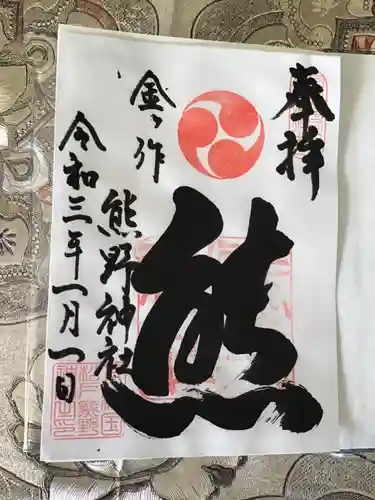 奉拝
熊
金ヶ作
熊野神社
令和三年一月一日